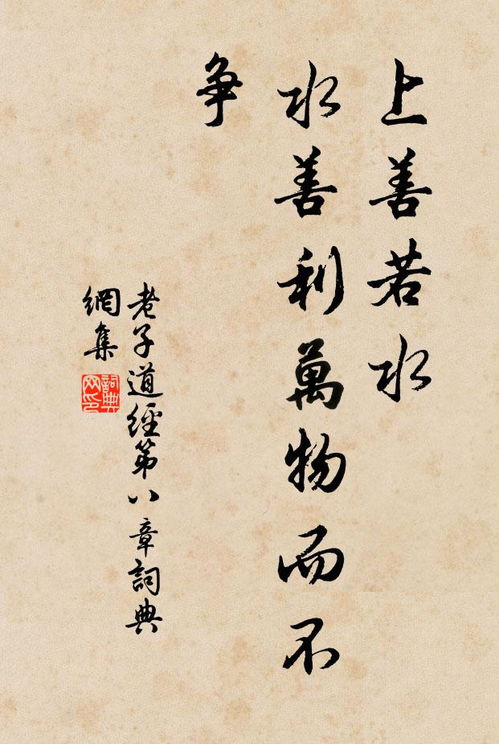 上善若水
水善利萬物而不
争
老子道經第八章詞典
網集
詞典
网印